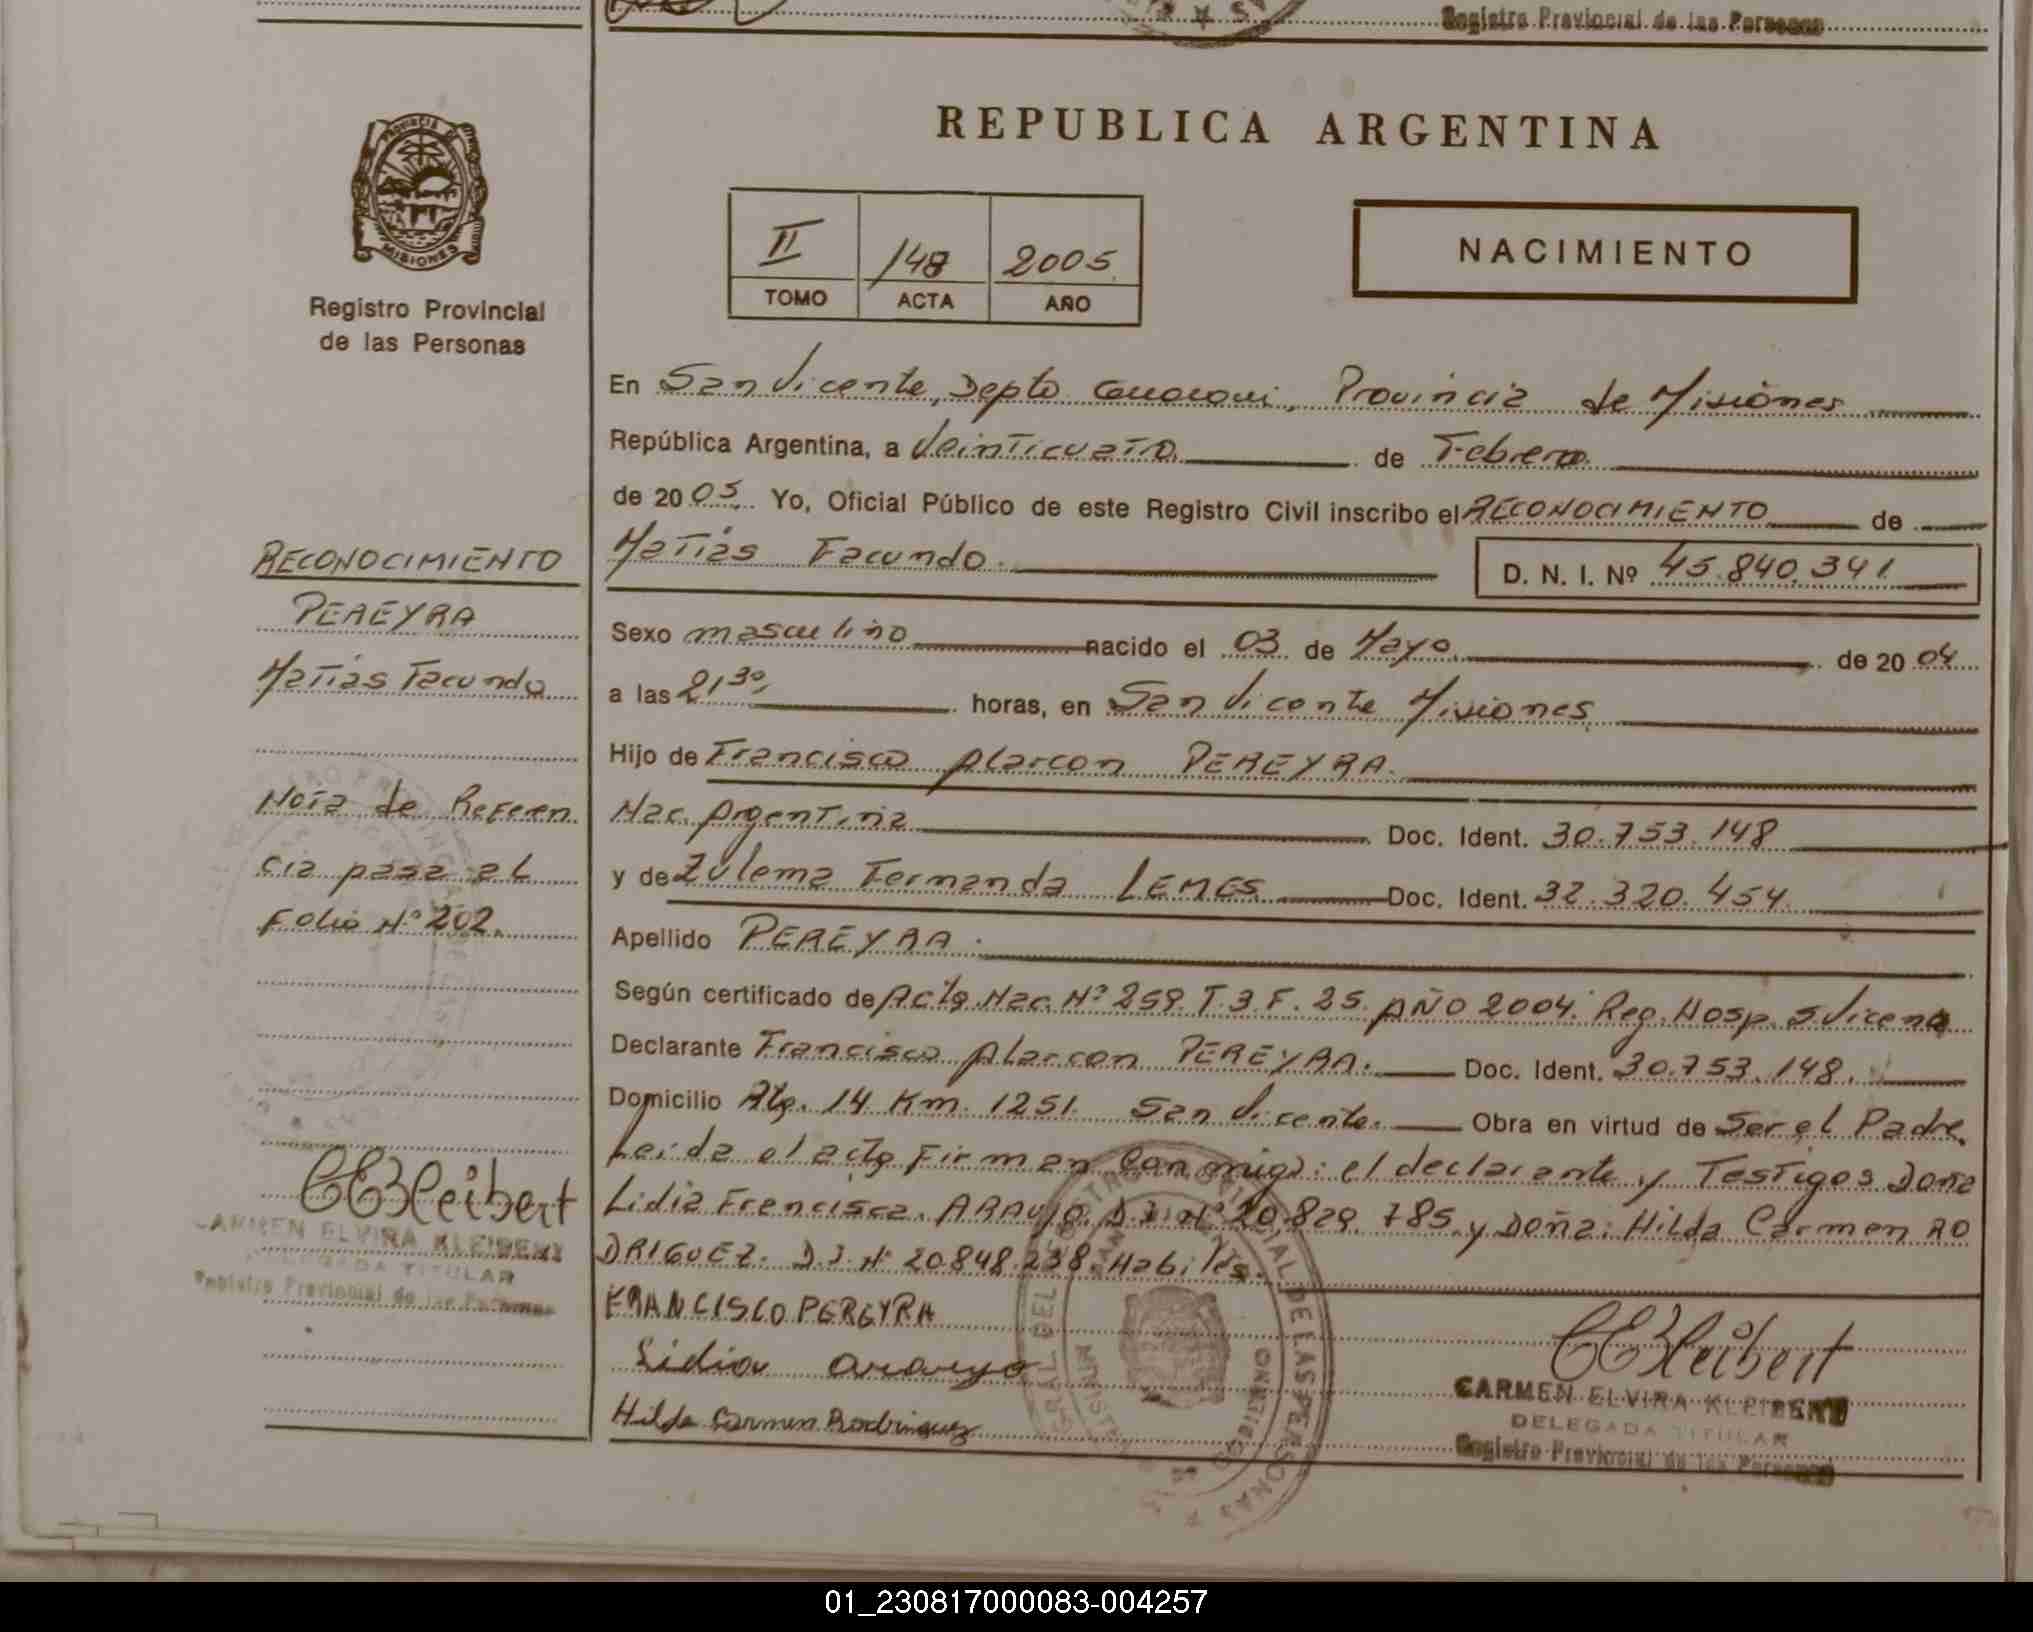 Registro Provincial de las Personas
REPUBLICA ARGENTINA
PROVINCIA DE
MISIONES
Registro Provincial
de las Personas
II 148 2005
TOMO ACTA AÑO
NACIMIENTO
En San Vicente, Depto Guaraní, Provincia de Misiones
República Argentina, a Veinticuatro de Febrero
de 2005 Yo, Oficial Público de este Registro Civil inscribo el RECONOCIMIENTO de
Matías Facundo. D. N. I. Nº 45.840.341
Sexo masculino nacido el 03 de Mayo de 2004
a las 21,30, horas, en San Vicente Misiones
Hijo de Francisco Alarcon PEREYRA.
Nac. Argentina Doc. Ident. 30.753.148
y de Zulema Fernanda LEMES Doc. Ident. 32.320.454
Apellido PEREYRA.
Según certificado de Acta Nac. Nº 259. T. 3 F. 25. AÑO 2004. Reg. Hosp. S. Vicente
Declarante Francisco Alarcon PEREYRA. Doc. Ident. 30.753.148.
Domicilio Rta. 14 Km. 1251. San Vicente. Obra en virtud de Ser el Padre.
Leída el acta Firman Conmigo: el declarante y Testigos Doña
Lidia Francisca ARAUJO. D.I. Nº 20.829.785. y Doña: Hilda Carmen RO
DRIGUEZ. D.I. Nº 20.848.238. Habiles.
FRANCISCO PEREYRA
Lidia araujo
Hilda Carmen Rodriguez
CEKleibert
CARMEN ELVIRA KLEIBERT
DELEGADA TITULAR
Registro Provincial de las Personas
RECONOCIMIENTO
PEREYRA
Matías Facundo
Nota de Referen
cia pasa al
Folio Nº 202.
CEKleibert
CARMEN ELVIRA KLEIBERT
DELEGADA TITULAR
Registro Provincial de las Personas
01_230817000083-004257